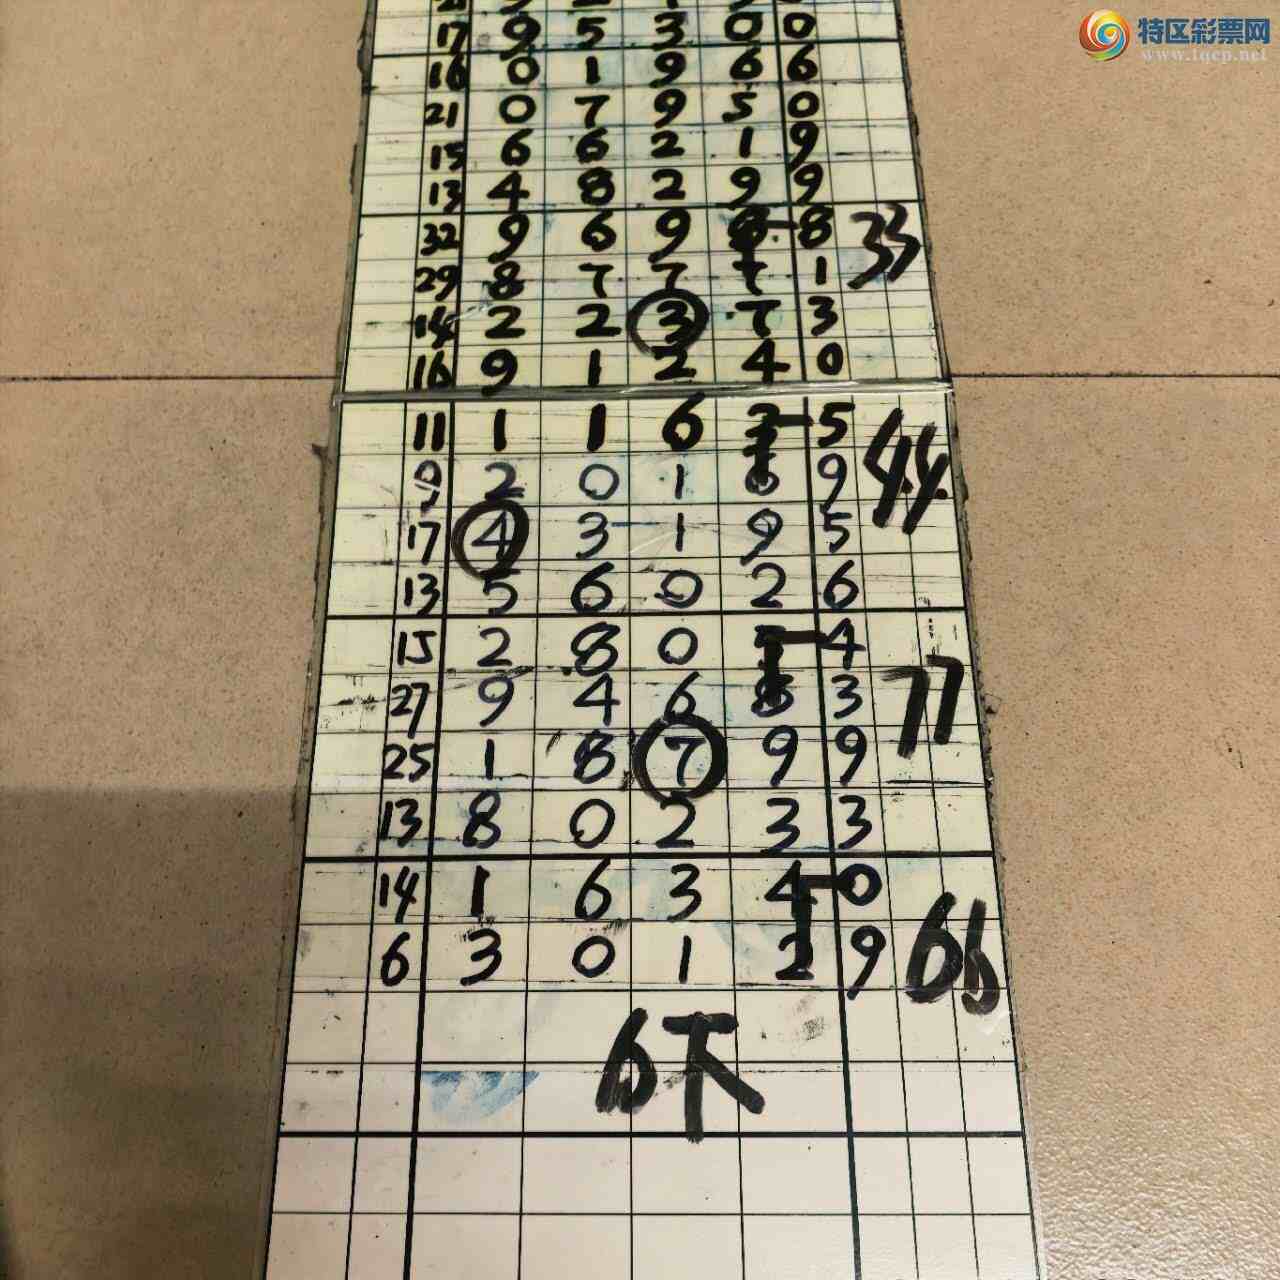 特区彩票网
www.tqcp.net
17 9 5 3 0 0
16 0 1 9 6 6
21 0 7 9 5 0
15 6 6 2 1 9
13 4 8 2 9 9
32 9 6 9 8 8 33
29 8 7 7 7 1
14 2 2 3 7 3
16 9 1 2 4 0
11 1 1 6 3 5 44
9 2 0 1 6 9
17 4 3 1 9 5
13 5 6 0 2 6
15 2 8 0 5 4
27 9 4 6 8 3 77
25 1 8 7 9 9
13 8 0 2 3 3
14 1 6 3 4 0
6 3 0 1 2 9 66
6下